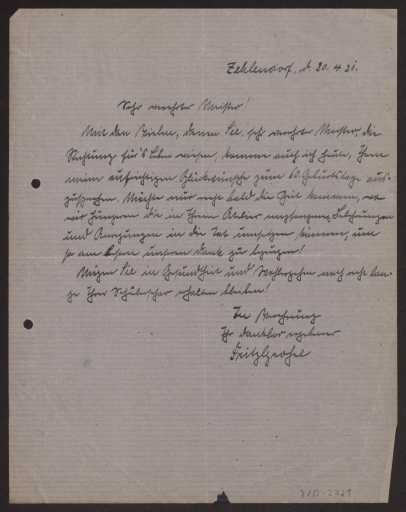 Zehlendorf, d. 20.4.21.
Sehr verehrter Meister!
Mit den Vielen, denen Sie, sehr verehrter Meister, die
Richtung für's Leben wiesen, komme auch ich heute, Ihnen
meine aufrichtigen Glückwünsche zum 60. Geburtstage aus-
zusprechen. Möchte nur recht bald die Zeit kommen, wo
wir Jüngeren die in Ihrem Atelier empfangenen
und Anregungen in die Tat umsetzen können, um
so am besten unseren Dank zu bezeugen!
Mögen Sie in Gesundheit und Wohlergehen noch recht lan-
ge Ihrer Schülerschar erhalten bleiben!
In Verehrung
Ihr dankbar ergebener
Fritz